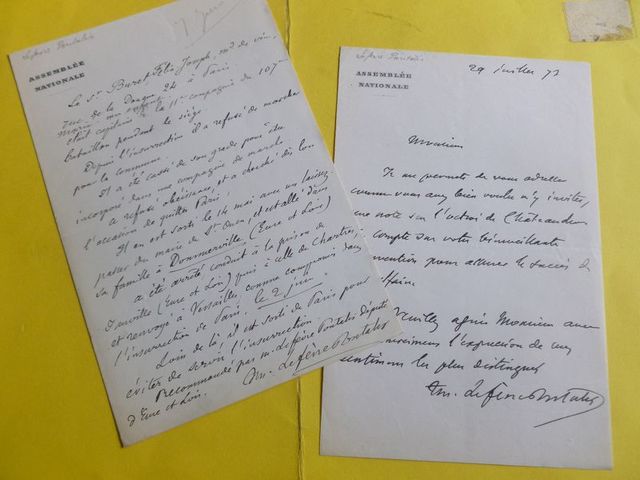 Lefèvre Pontalis
7 juin
ASSEMBLÉE
NATIONALE
Le Sr Buret Félix Joseph, md de vin,
rue de la Douane 24 à Paris
marié un enfant
était capitaine à la 11e compagnie du 107e
bataillon pendant le siège.
Depuis l'insurrection il a refusé de marcher
pour la commune.
Il a été cassé de son grade pour être
incorporé dans une compagnie de marche
a refusé obéissance, et a cherché dès lors
l'occasion de quitter Paris.
Il en est sorti le 14 mai avec un laissez
passer du maire de St Ouen, et est allé dans
sa famille à Dommerville (Eure et Loir)
a été arrêté conduit à la prison de
Janville (Eure et Loir) puis à celle de Chartres,
et renvoyé à Versailles, comme compromis dans
l'insurrection de Paris, le 2 juin.
Loin de là, il est sorti de Paris pour
éviter de servir l'insurrection.
Recommandé par M. Lefèvre Pontalis Député
d'Eure et Loir.
Am. Lefèvre Pontalis
Lefèvre Pontalis
ASSEMBLÉE
NATIONALE
29 juillet 72
Monsieur
Je me permets de vous adresser
comme vous avez bien voulu m'y inviter,
une note sur l'octroi de Châteaudun
compte sur votre bienveillante
pour assurer le succès de
affaire
Veuillez agréer Monsieur avec
l'expression de mes
sentiments les plus distingués
Am. Lefèvre Pontalis